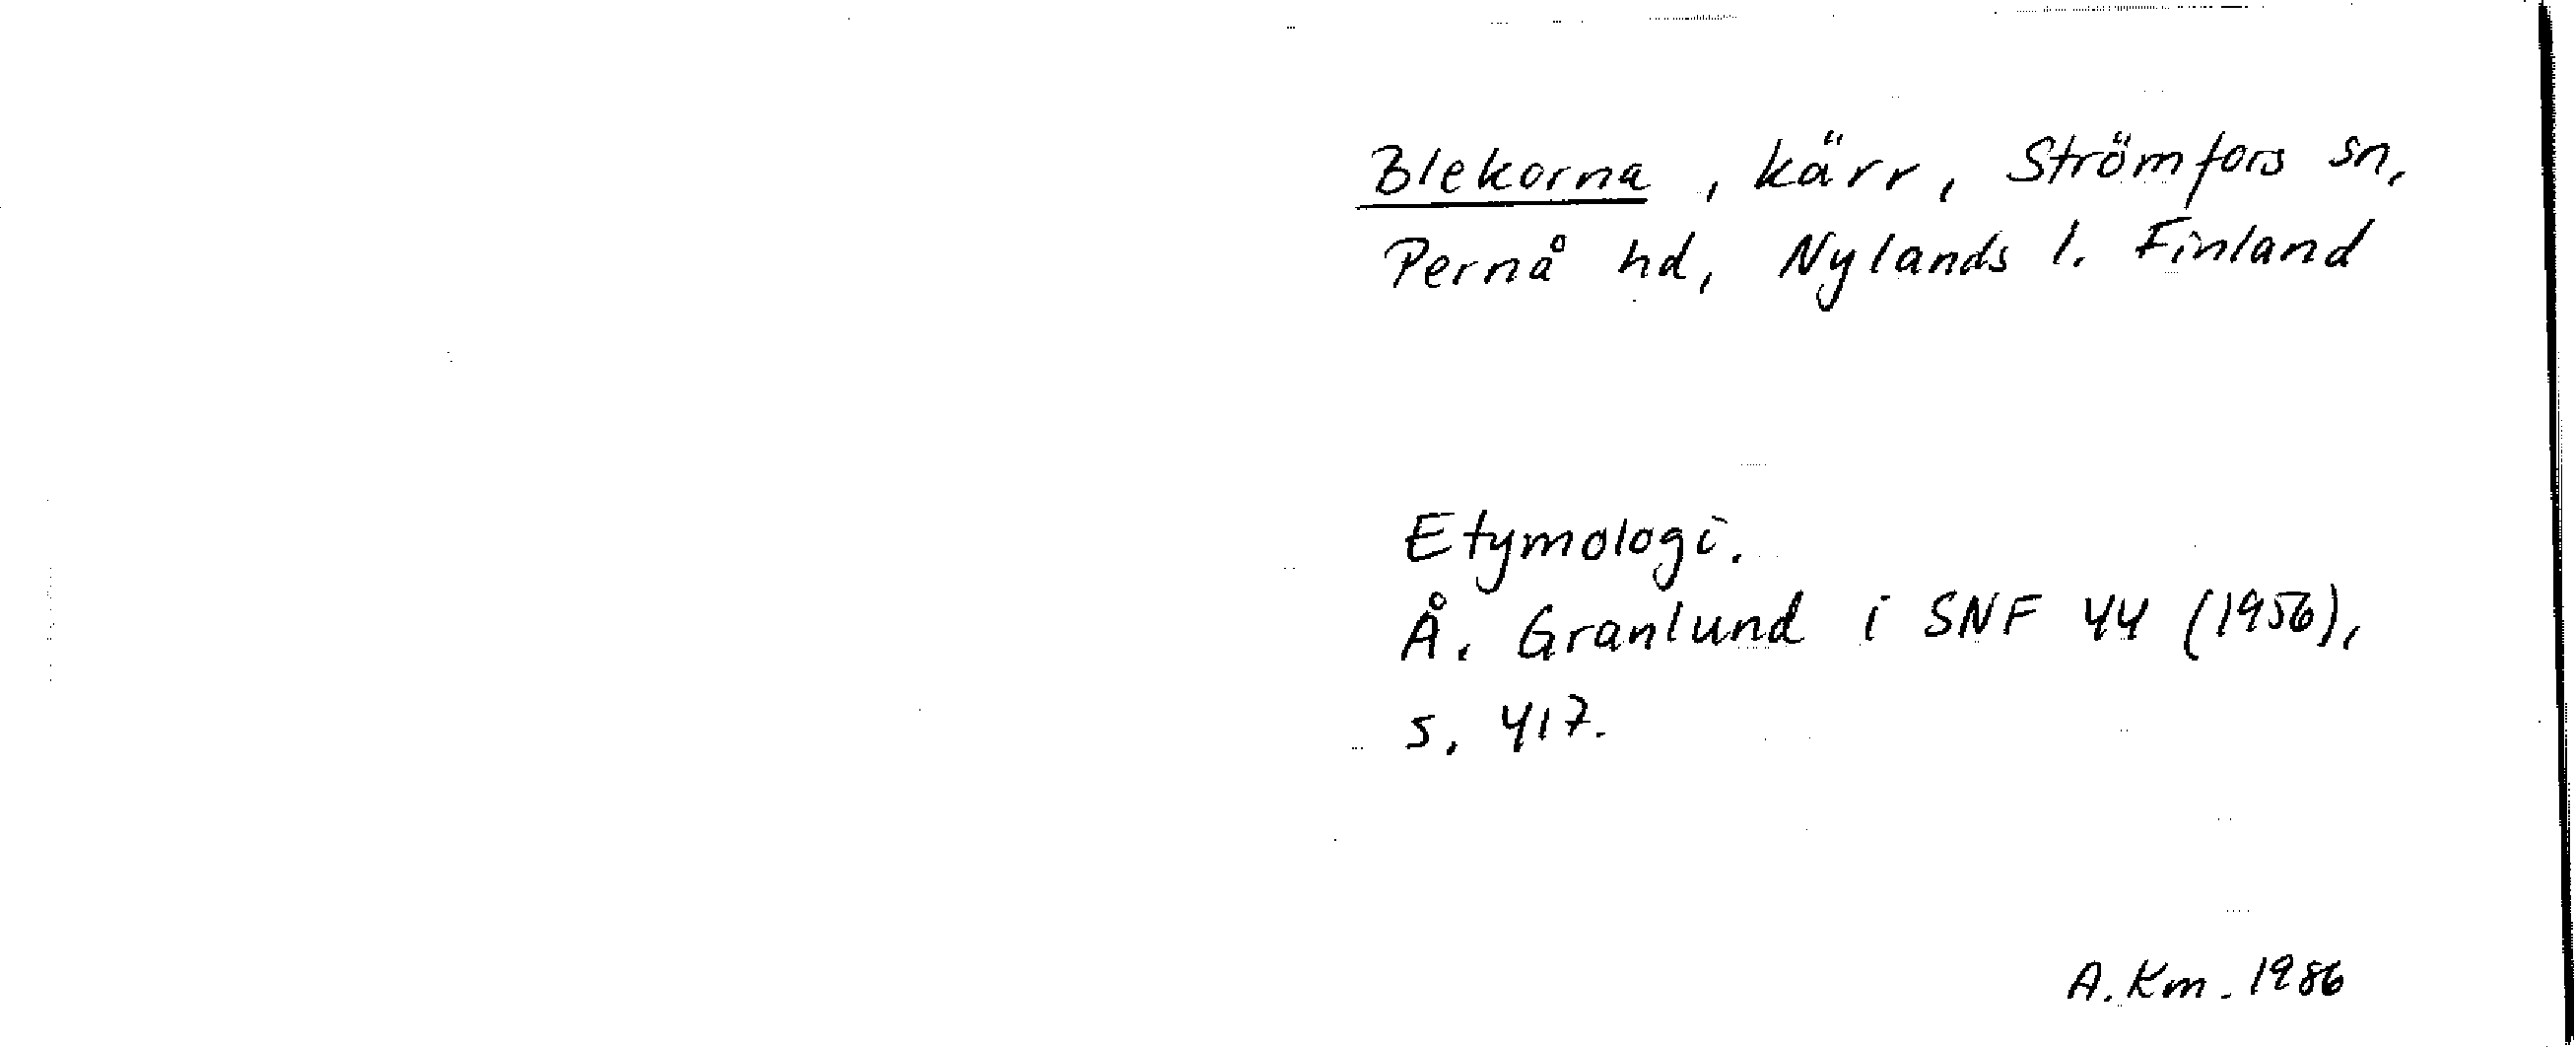 Blekorna, kärr, Strömfors sn,
Pernå hd, Nylands l. Finland
Etymologi.
Å. Granlund i SNF 44 (1956),
s. 417.
A. Km. 1986